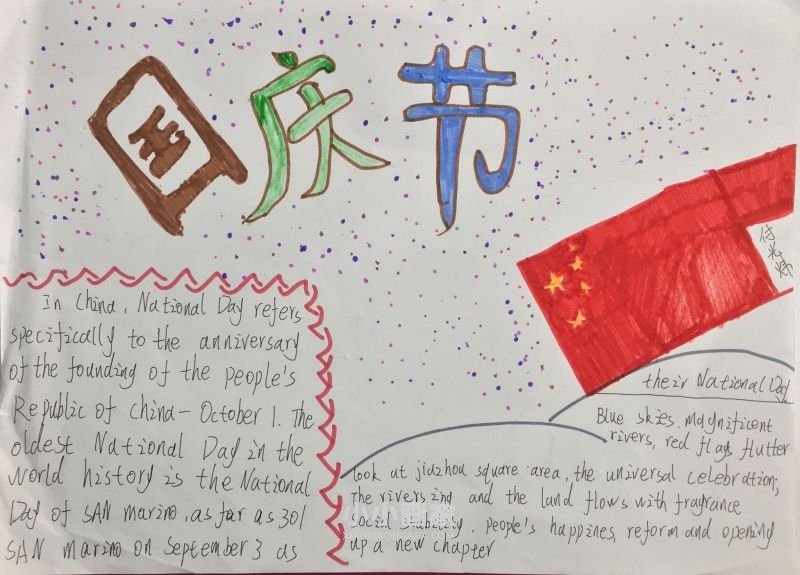 国庆节
付光炜
In China, National Day refers
specifically to the anniversary
of the founding of the people's
Republic of china - October 1. The
oldest National Day in the
world history is the National
Day of SAN marino, as far as 301
SAN marino on September 3 as
their National Day
Blue skies, magnificent
rivers, red flags flutter
look at jiazhou square area, the universal celebration;
The river sing and the land flows with fragrance
social people's happines, reform and opening
up a new chapter